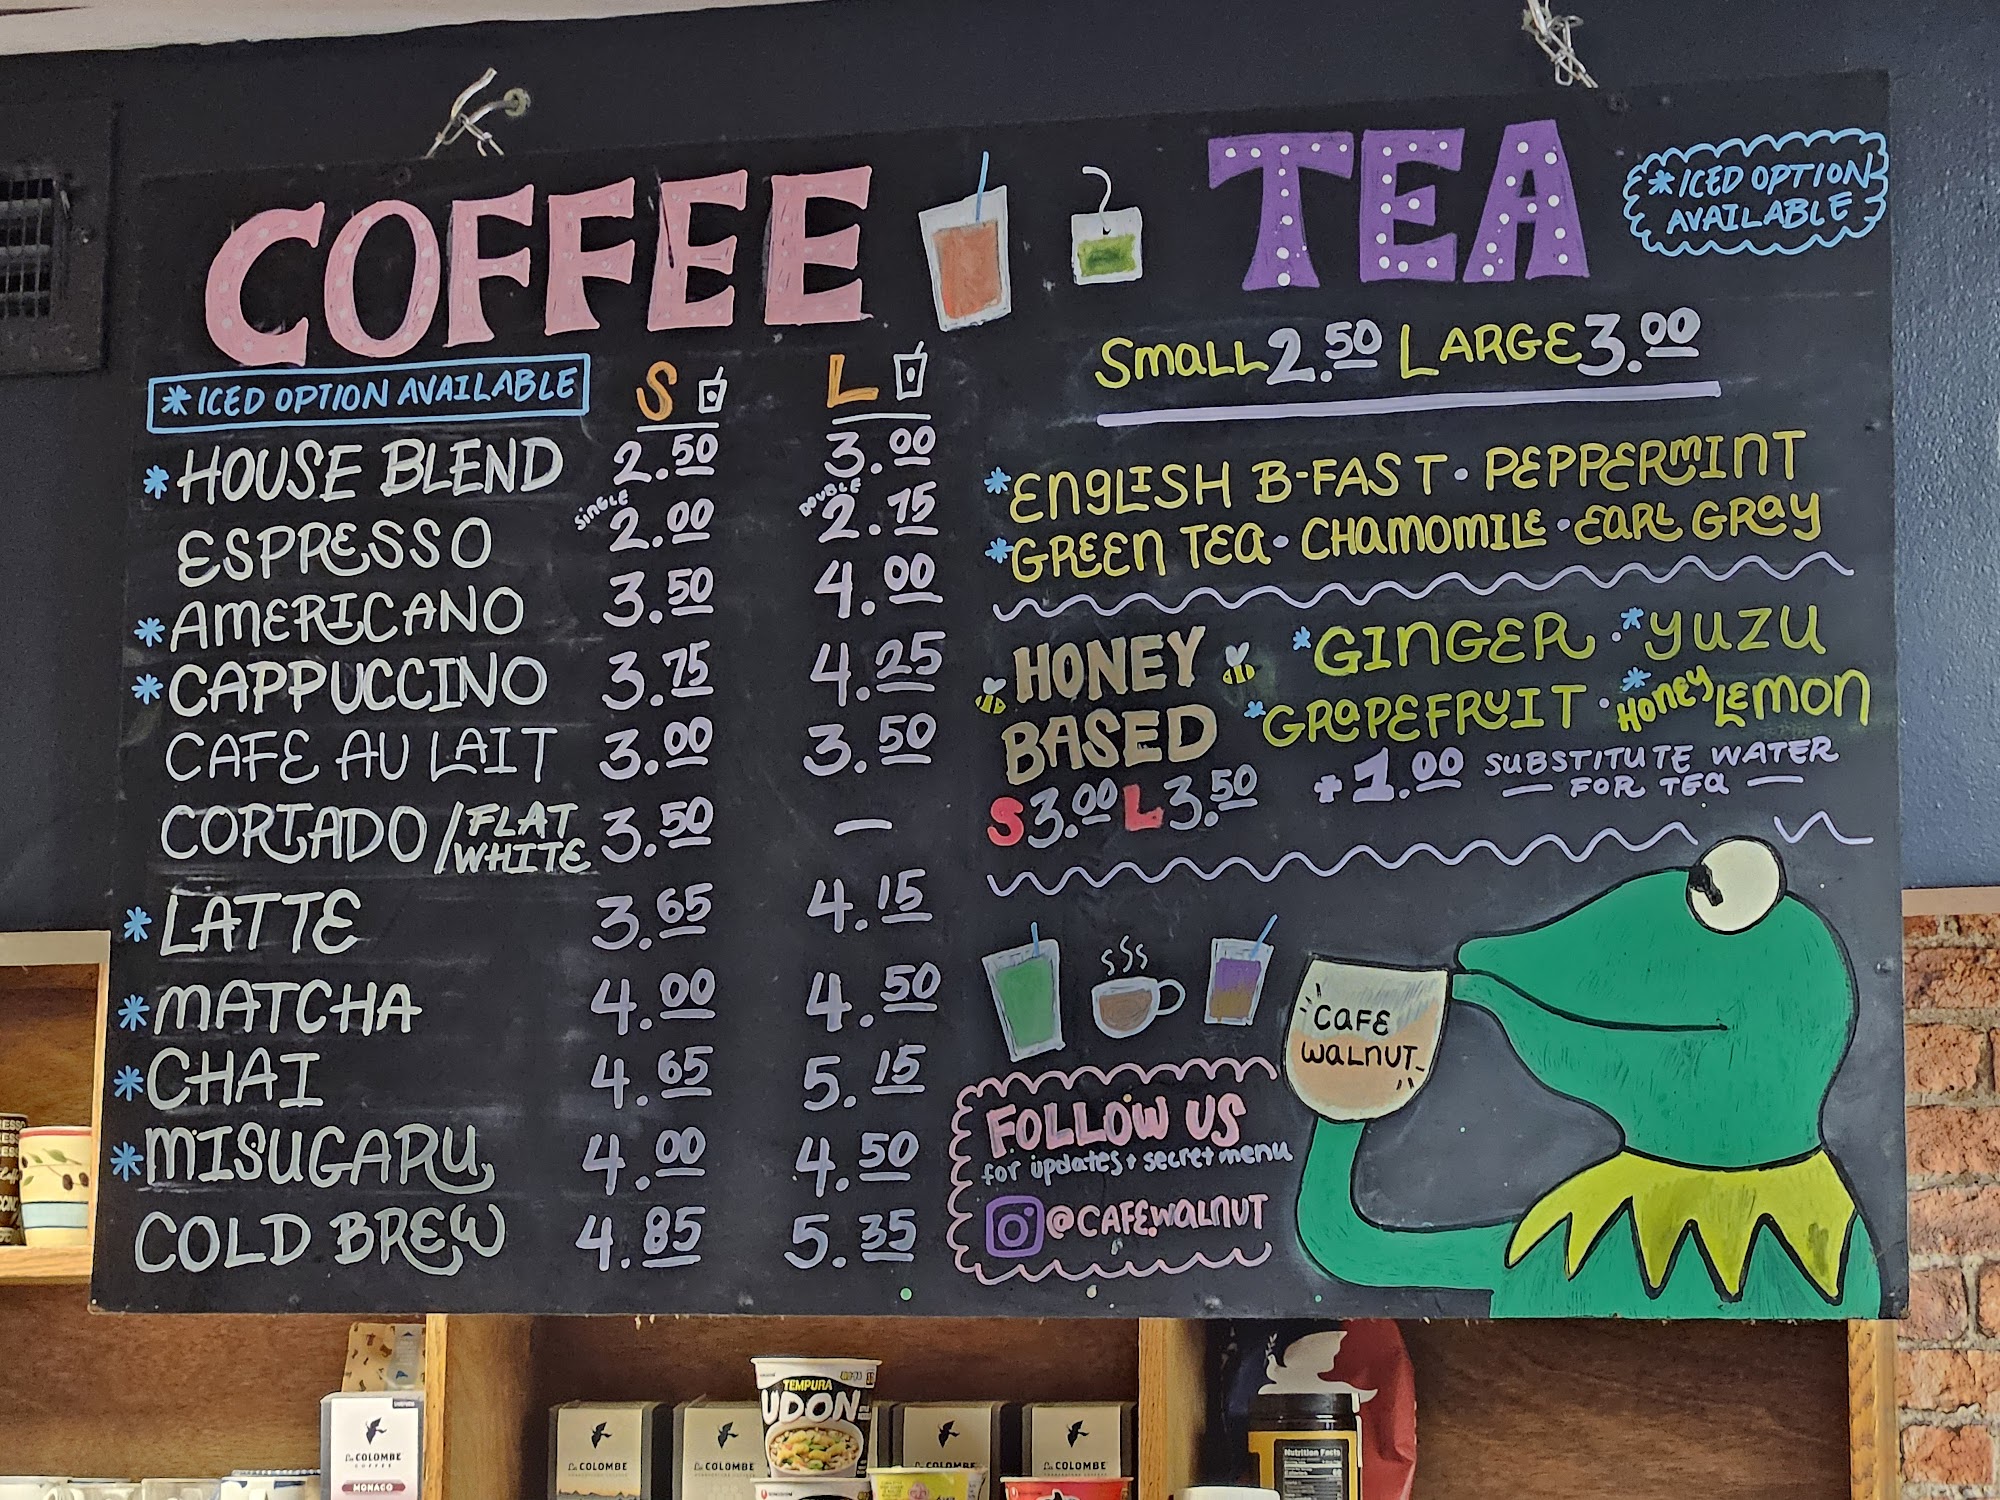 COFFEE
*ICED OPTION AVAILABLE
S L
*HOUSE BLEND 2.50 3.00
ESPRESSO SINGLE 2.00 DOUBLE 2.75
*AMERICANO 3.50 4.00
*CAPPUCCINO 3.75 4.25
CAFE AU LAIT 3.00 3.50
CORTADO/FLAT WHITE 3.50 —
*LATTE 3.65 4.15
*MATCHA 4.00 4.50
*CHAI 4.65 5.15
*MISUGARU 4.00 4.50
COLD BREW 4.85 5.35
TEA
*ICED OPTION
AVAILABLE
Small 2.50 LARGE 3.00
*ENGLISH B-FAST · PEPPERMINT
*GREEN TEA · CHAMOMILE · EARL GRAY
HONEY
BASED
S 3.00 L 3.50
*GINGER · *YUZU
*GRAPEFRUIT · *HONEY LEMON
+1.00 SUBSTITUTE WATER
— FOR TEA —
CAFE
WALNUT
FOLLOW US
for updates + secret menu
@CAFE.WALNUT
TEMPURA
UDON
La COLOMBE
COFFEE
MONACO
La COLOMBE
La COLOMBE
COLOMBE
La COLOMBE
Nutrition Facts